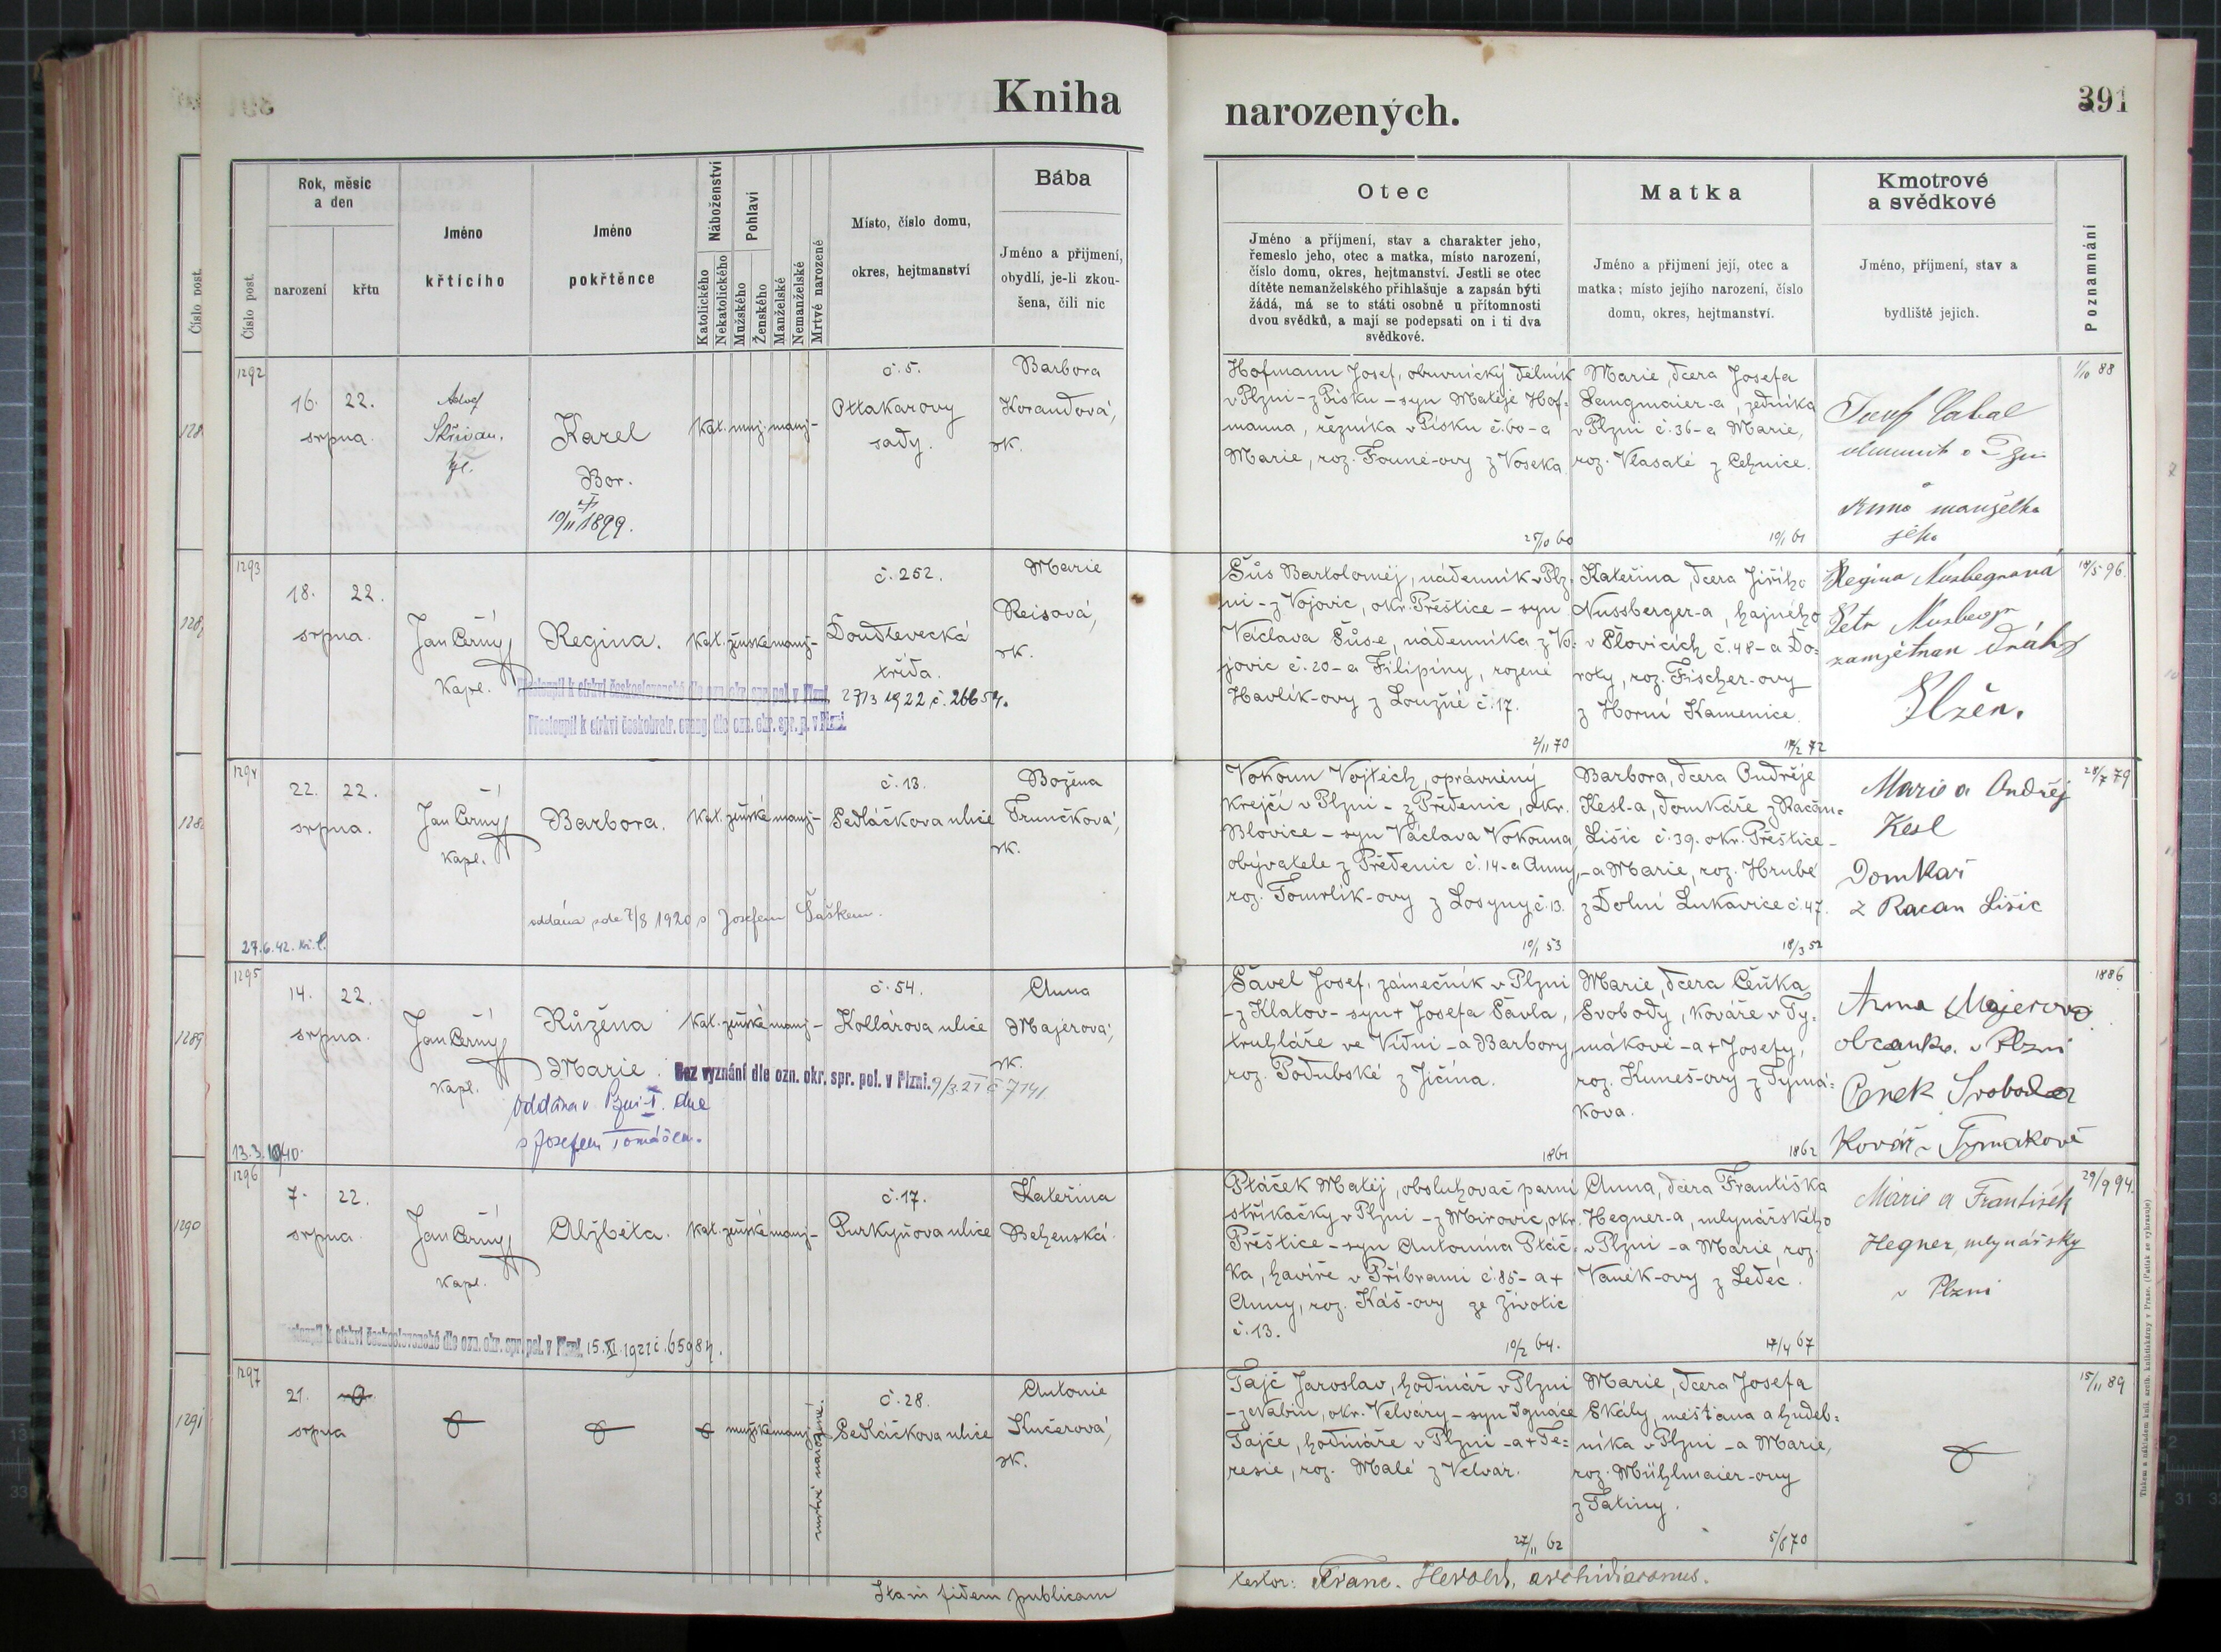 Kniha
narozených.
391
Číslo post.
Číslo post.
Rok, měsíc
a den
narození
křtu
Jméno
křtícího
Jméno
pokřtěnce
Náboženství
Katolického
Nekatolického
Pohlaví
Mužského
Ženského
Manželské
Nemanželské
Mrtvě narozené
Místo, číslo domu,
okres, hejtmanství
Bába
Jméno a příjmení,
obydlí, je-li zkou-
šena, čili nic
Otec
Jméno a příjmení, stav a charakter jeho,
řemeslo jeho, otec a matka, místo narození,
číslo domu, okres, hejtmanství. Jestli se otec
dítěte nemanželského přihlašuje a zapsán býti
žádá, má se to státi osobně u přítomnosti
dvou svědků, a mají se podepsati on i ti dva
svědkové.
Matka
Jméno a příjmení její, otec a
matka; místo jejího narození, číslo
domu, okres, hejtmanství.
Kmotrové
a svědkové
Jméno, příjmení, stav a
bydliště jejich.
Poznamnání
1292
16. 22.
srpna.
Skřivan.
Karel
Bor.
10/II 1899.
Kat. muž. manž-
č. 5.
Ottakarovy
sady.
Barbora
Korandová,
zk.
Hofmann Josef, obuvnický dělník
v Plzni - z Písku - syn Matěje Hof-
manna, řezníka v Písku č. 60 - a
Marie, roz. Founě-ovy z Voseka.
25/10 60
Marie, dcera Josefa
Langmaier-a, zedníka
v Plzni č. 36 - a Marie,
roz. Vlasaté z Cehnice.
19/1 61
Josef Cabal
v Plzni
Anna manželka
jeho
1/10 88
1293
18. 22.
srpna.
Jan Černý
Kapl.
Regina.
Kat. ženské manž-
č. 252.
Doudlevecká
třída.
Marie
Reisová,
zk.
Přestoupil k církvi československé dle ozn. okr. spr. pol. v Plzni. 27/3 1922 č. 26654.
Přestoupil k církvi českobratr. evang. dle ozn. okr. spr. p. v Plzni.
Šůs Bartoloměj, nádenník v Plz-
ni - z Vojovic, okr. Přeštice - syn
Václava Šůs-e, nádenníka z Vo-
jovic č. 20 - a Filipiny, rozené
Havlík-ovy z Loužné č. 17.
2/11 70
Kateřina, dcera Jiřího
Nussberger-a, hajného
v Plovicích č. 48 - a Do-
roty, roz. Fischer-ovy
z Horní Kamenice.
17/2 72
Regina
Petr
dráhy
Plzeň.
18/5 96.
1294
22. 22.
srpna.
Jan Černý
Kapl.
Barbora.
Kat. ženské manž-
č. 13.
Sedláčkova ulice
Božena
Trunčková,
zk.
oddána dne 7/8 1920 s Josefem Šaškem.
27.6.42.
Vokoun Vojtěch, oprávněný
krejčí v Plzni - z Předenic, okr.
Blovice - syn Václava Vokouna,
obyvatele z Předenic č. 14 - a Anny,
roz. Tomrlík-ovy z Losyny č. 13.
10/1 53
Barbora, dcera Ondřeje
Kesl-a, domkáře z Račan-
Lišic č. 39. okr. Přeštice -
- a Marie, roz. Hrubé
z Dolní Lukavice č. 47.
18/3 52
Marie a Ondřej
Kesl
Domkař
z Racan Lišic
28/7 79
1295
14. 22.
srpna.
Jan Černý
Kapl.
Růžena
Marie.
Kat. ženské manž-
č. 54.
Kollárova ulice
Anna
Majerová,
zk.
Bez vyznání dle ozn. okr. spr. pol. v Plzni. 9/3 21 č 7141
Oddána v Plzni I. dne
s Josefem Tomášem.
13.3.1940.
Šavel Josef, zámečník v Plzni
- z Klatov - syn + Josefa Šavla,
truhláře ve Vídni - a Barbory,
roz. Podubské z Jičína.
1861
Marie, dcera Čeňka
Svobody, kováře v Ty-
mákově - a + Josefy,
roz. Kuneš-ovy z Tymá-
kova.
1862
Anna Majerova
občanka v Plzni
Čeněk Svoboda
Kovář v Tymakově
1886
1296
7. 22.
srpna
Jan Černý
Kapl.
Alžběta.
Kat. ženské manž-
č. 17.
Purkyňova ulice
Kateřina
Behenská.
Přestoupil k církvi československé dle ozn. okr. spr. pol. v Plzni. 15.XI.1921 č. 65984.
Ptáček Matěj, obsluhovač parní
stříkačky v Plzni - z Mirovic, okr.
Přeštice - syn Antonína Ptáč-
ka, havíře v Příbrami č. 85 - a +
Anny, roz. Káš-ovy ze Životic
č. 13.
10/2 64.
Anna, dcera Františka
Hegner-a, mlynářského
v Plzni - a Marie, roz.
Vaněk-ovy z Ledec.
17/4 67
Marie a František
Hegner, mlynářsky
v Plzni
29/9 94.
1297
21.
srpna
mužské manž-
mrtvě narozené.
č. 28.
Sedláčkova ulice
Antonie
Kučerová,
zk.
Tajč Jaroslav, hodinář v Plzni
- z Nabin, okr. Velvary - syn Ignáce
Tajče, hodináře v Plzni - a + Te-
resie, roz. Malé z Velvar.
27/11 62
Marie, dcera Josefa
Skály, měšťana a hudeb-
níka v Plzni - a Marie,
roz. Mühlmaier-ovy
z Tatiny.
5/6 70
15/11 89
Itam fidem publicam
testor: Franc. Herold, archidiaconus.
1289
1290
1291